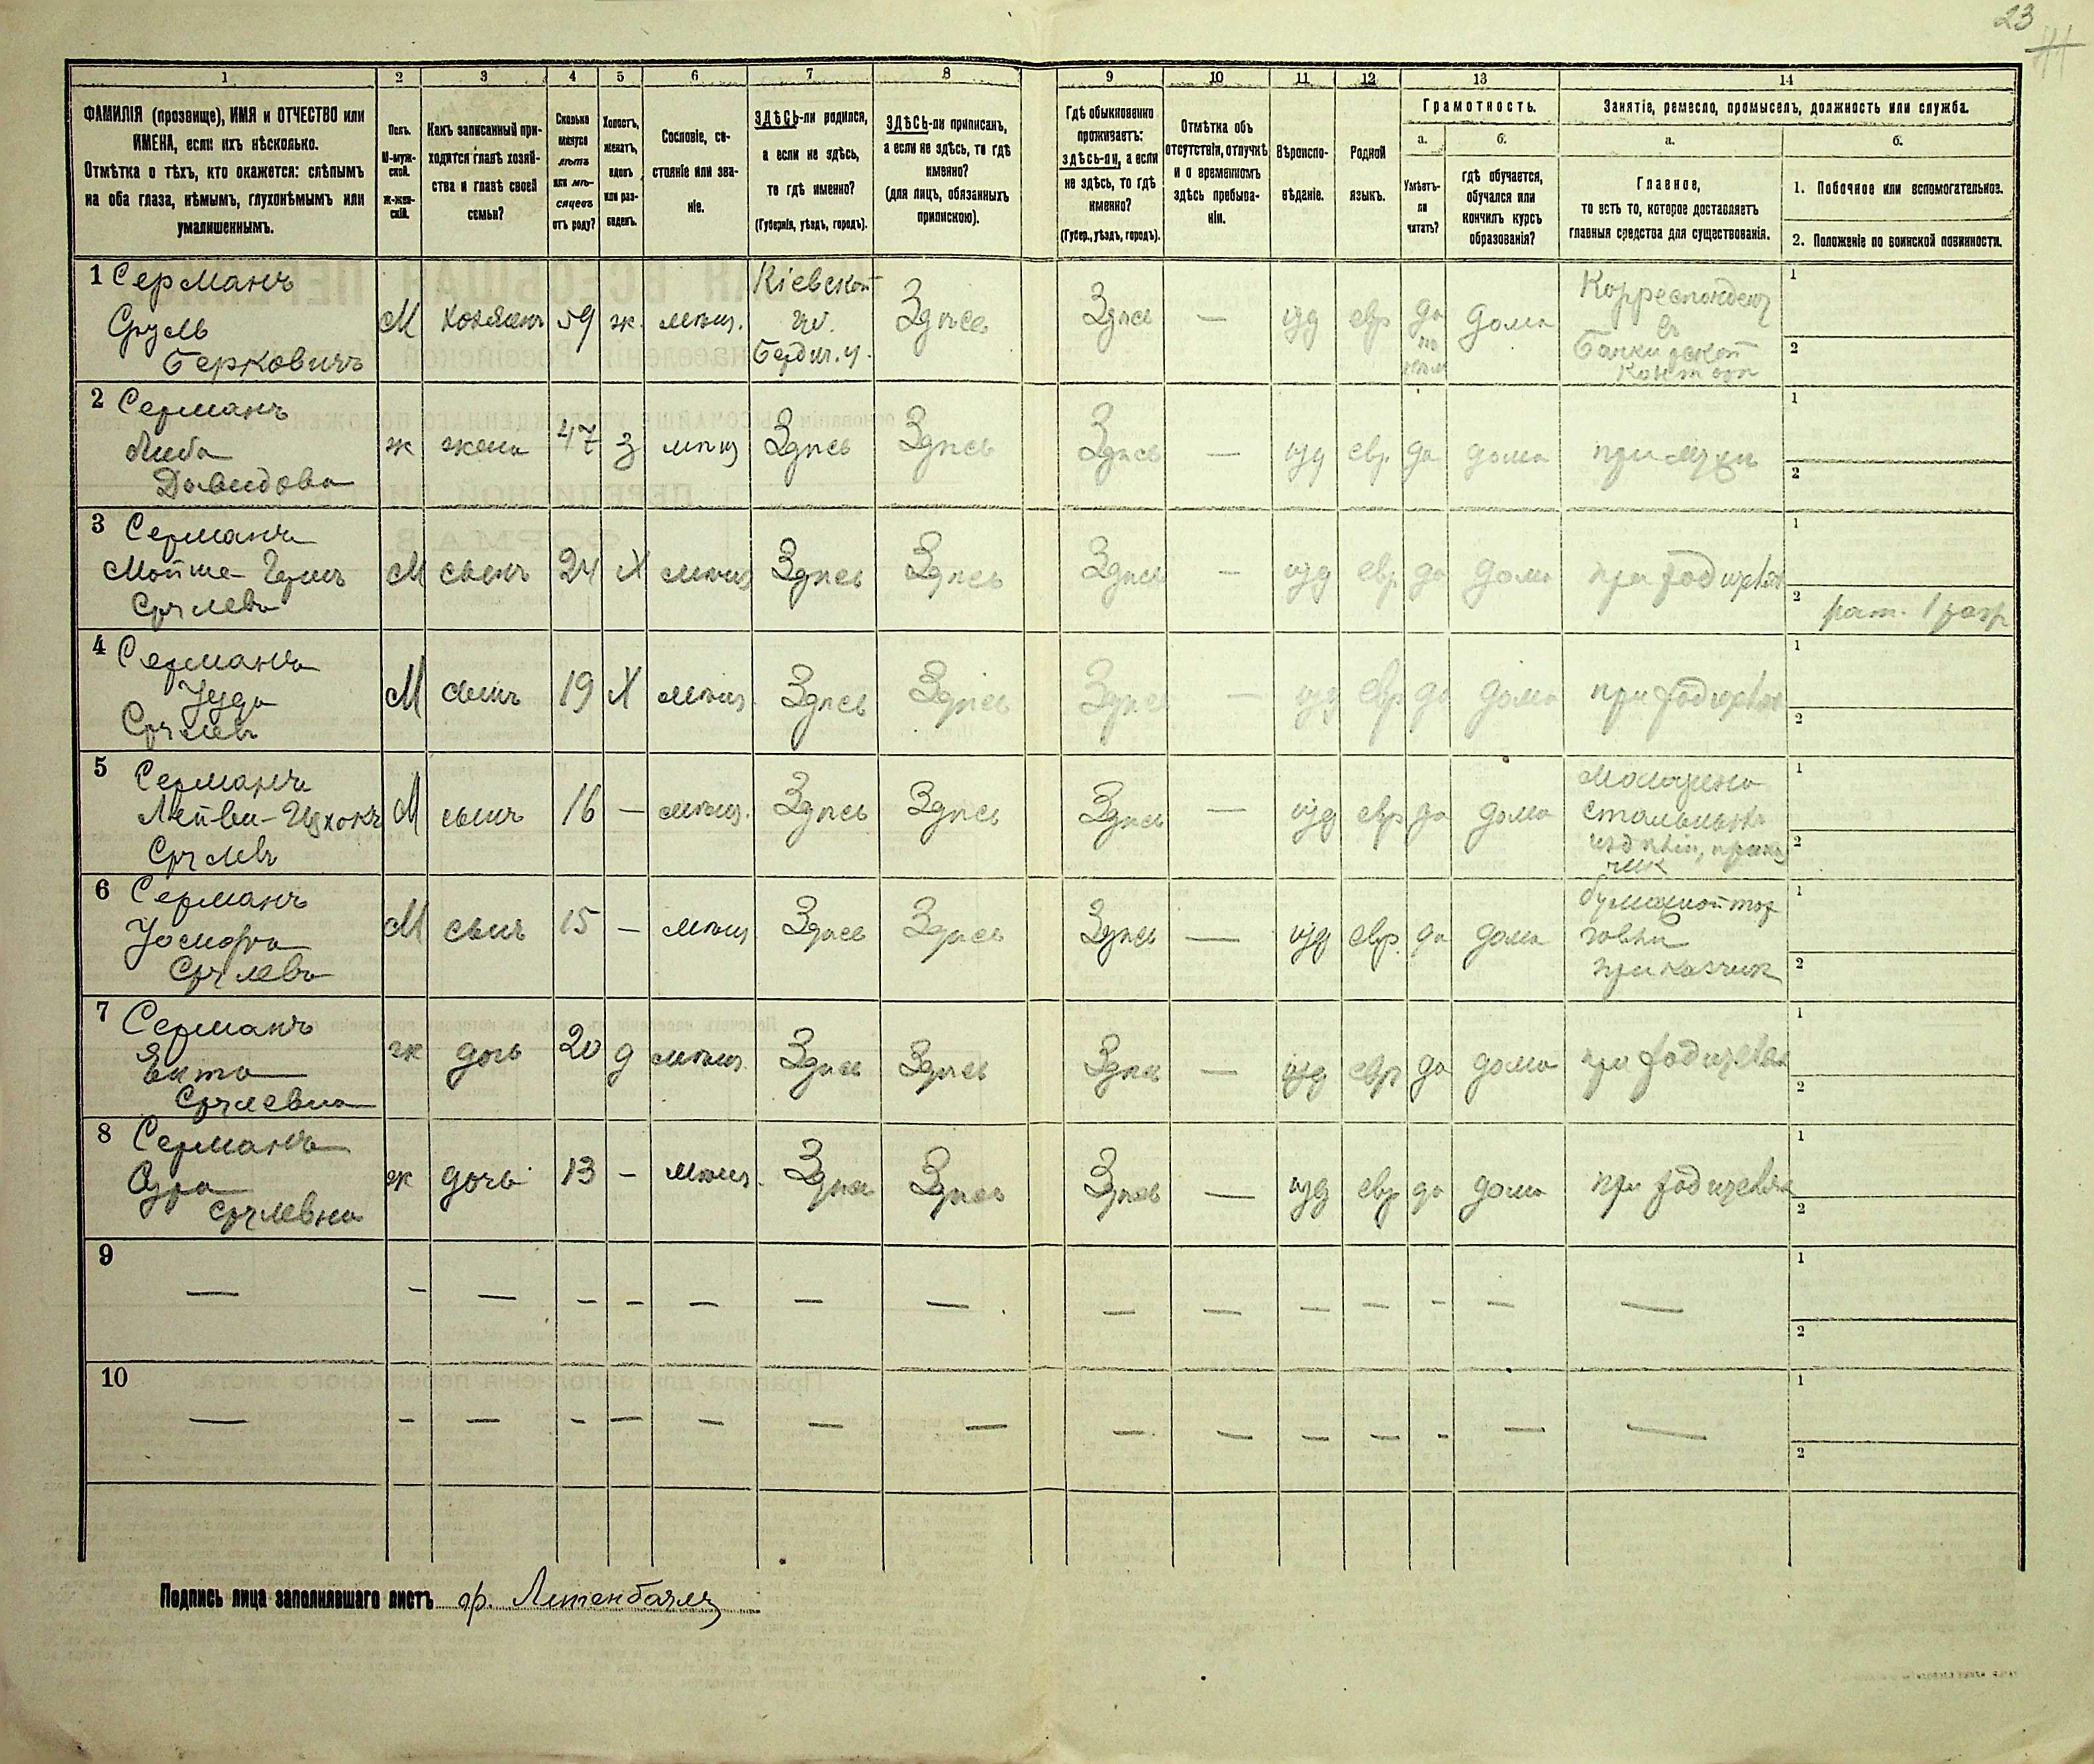 23
1 2 3 4 5 6 7 8 9 10 11 12 13 14
ФАМИЛІЯ (прозвище), ИМЯ и ОТЧЕСТВО или
ИМЕНА, если ихъ нѣсколько.
Отмѣтка о тѣхъ, кто окажется: слѣпымъ
на оба глаза, нѣмымъ, глухонѣмымъ или
умалишеннымъ.
Полъ.
М-муж-
ской.
Ж-жен-
скій.
Какъ записанный при-
ходится главѣ хозяй-
ства и главѣ своей
семьи?
Сколько
минуло
лѣтъ
или мѣ-
сяцевъ
отъ роду?
Холостъ,
женатъ,
вдовъ
или раз-
веденъ.
Сословіе, со-
стояніе или зва-
ніе.
ЗДѢСЬ-ли родился,
а если не здѣсь,
то гдѣ именно?
(Губернія, уѣздъ, городъ).
ЗДѢСЬ-ли приписанъ,
а если не здѣсь, то гдѣ
именно?
(для лицъ, обязанныхъ
припискою).
Гдѣ обыкновенно
проживаетъ:
здѣсь-ли, а если
не здѣсь, то гдѣ
именно?
(Губер., уѣздъ, городъ).
Отмѣтка объ
отсутствіи, отлучкѣ
и о временномъ
здѣсь пребыва-
ніи.
Вѣроиспо-
вѣданіе.
Родной
языкъ.
Грамотность.
а.
Умѣетъ-
ли
читать?
б.
гдѣ обучается,
обучался или
кончилъ курсъ
образованія?
Занятіе, ремесло, промыселъ, должность или служба.
а.
Главное,
то есть то, которое доставляетъ
главныя средства для существованія.
б.
1. Побочное или вспомогательное.
2. Положеніе по воинской повинности.
1 Серманъ
Сруль
Берковичъ
М хозяинъ 59 ж. мѣщ.
Кіевской
гу.
Бердич. у.
Здѣсь Здѣсь — іуд евр да
дома
Корреспондент
въ
Банкирской
Контор
1
2
2 Серманъ
Либа
Давидова
ж жена 47 з мѣщ Здѣсь Здѣсь Здѣсь — іуд евр. да дома при мужѣ
1
2
3 Серманъ
Мойше-Гершъ
Срулевъ
М сынъ 24 Х мѣщ Здѣсь Здѣсь Здѣсь — іуд евр. да дома при родителях
1
2 рат. 1 разр
4 Серманъ
Іуда
Срулевъ
М сынъ 19 Х мѣщ. Здѣсь Здѣсь Здѣсь — іуд евр да дома при родителях
1
2
5 Серманъ
Лейви-Ицхокъ
Срулевъ
М сынъ 16 — мѣщ. Здѣсь Здѣсь Здѣсь — іуд евр да дома
стальных
издѣлій, приказ
чик
1
2
6 Серманъ
Срулевъ
М сынъ 15 — мѣщ. Здѣсь Здѣсь Здѣсь — іуд евр. да дома
бумажной тор
говли
приказчик
1
2
7 Серманъ
Ента
Срулевна
ж дочь 20 д мѣщ. Здѣсь Здѣсь Здѣсь — іуд евр да дома при родителях
1
2
8 Серманъ
Сура
Срулевна
ж дочь 13 — мѣщ. Здѣсь Здѣсь Здѣсь — іуд евр да дома при родителях
1
2
9 — — — — — — — — — — — — — — —
1
2
10 — — — — — — — — — — — — — — —
1
2
Подпись лица заполнявшаго листъ